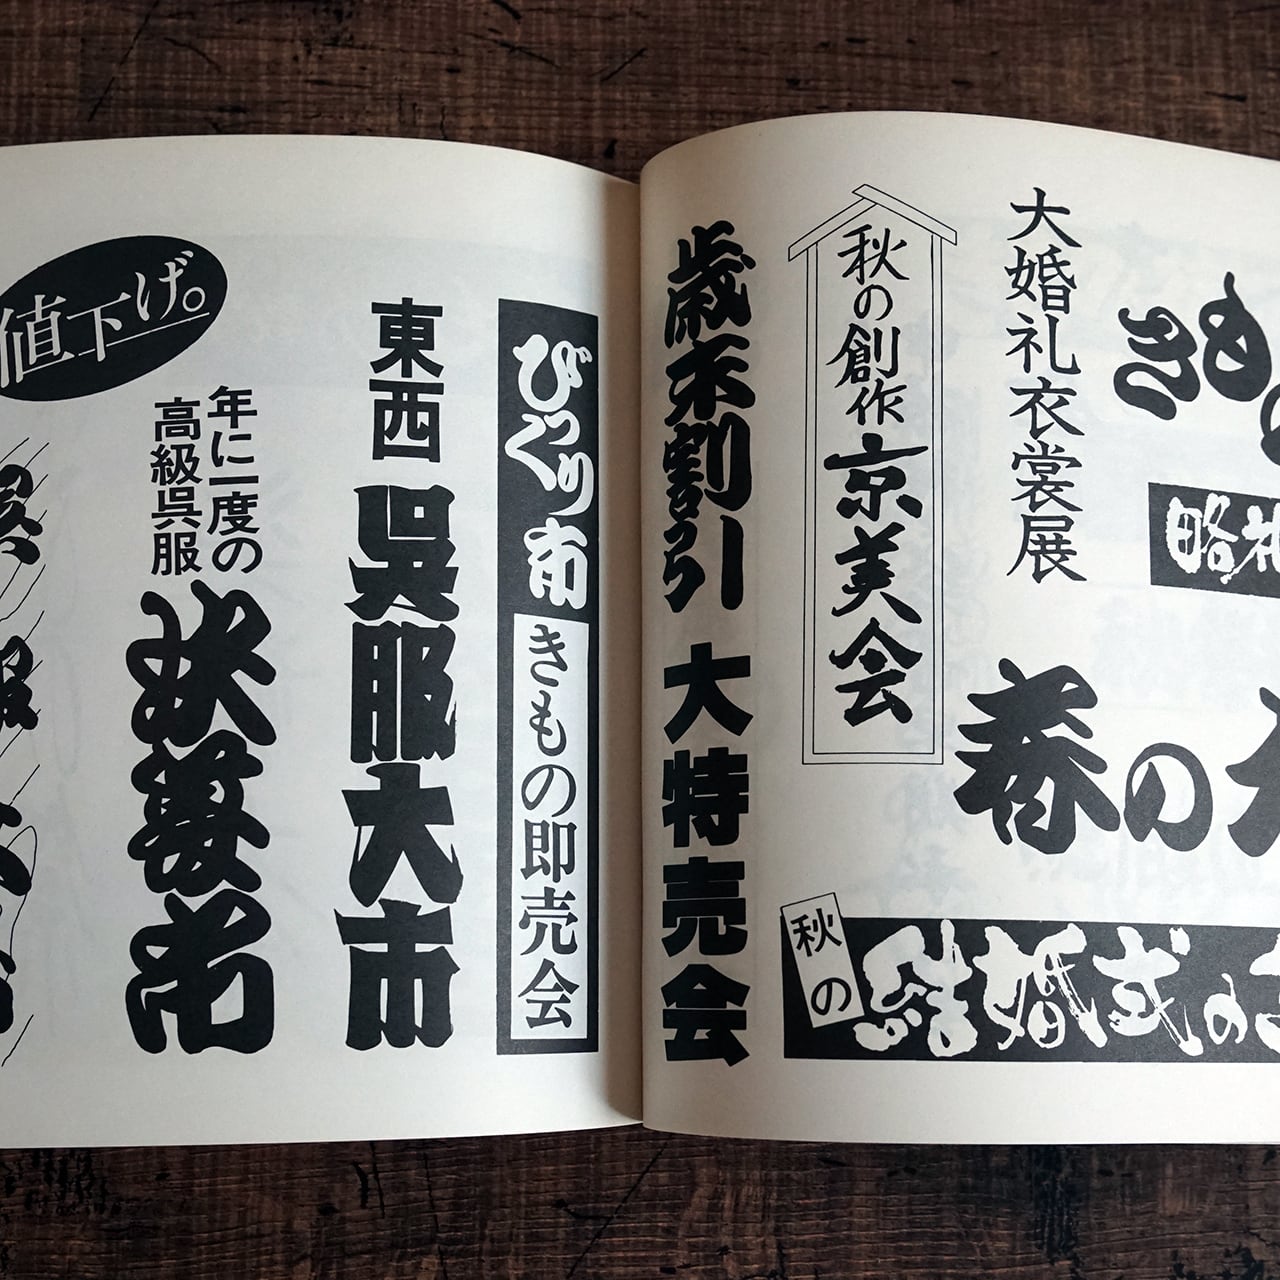 きもの
略礼
大婚礼衣裳展
春の
秋の創作 京美会
秋の
結婚式の
歳末割引 大特売会
びっくり市 きもの即売会
東西 呉服大市
年に一度の
高級呉服
衣裳市
値下げ。
呉服大